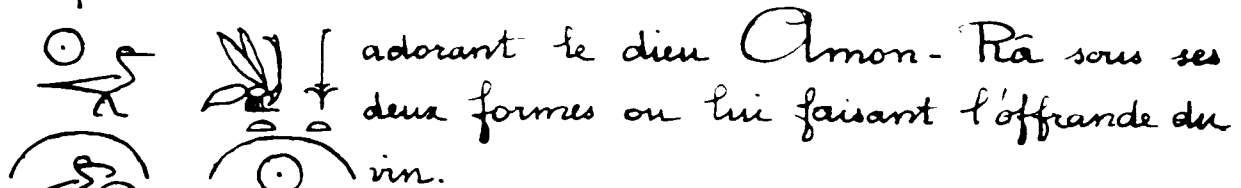 adorant le dieu Amon-Râ sous ses
deux formes ou lui faisant l'offrande du
vin.